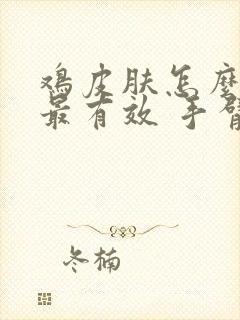 鸡皮肤怎麽
最有效 手臂
冬楠